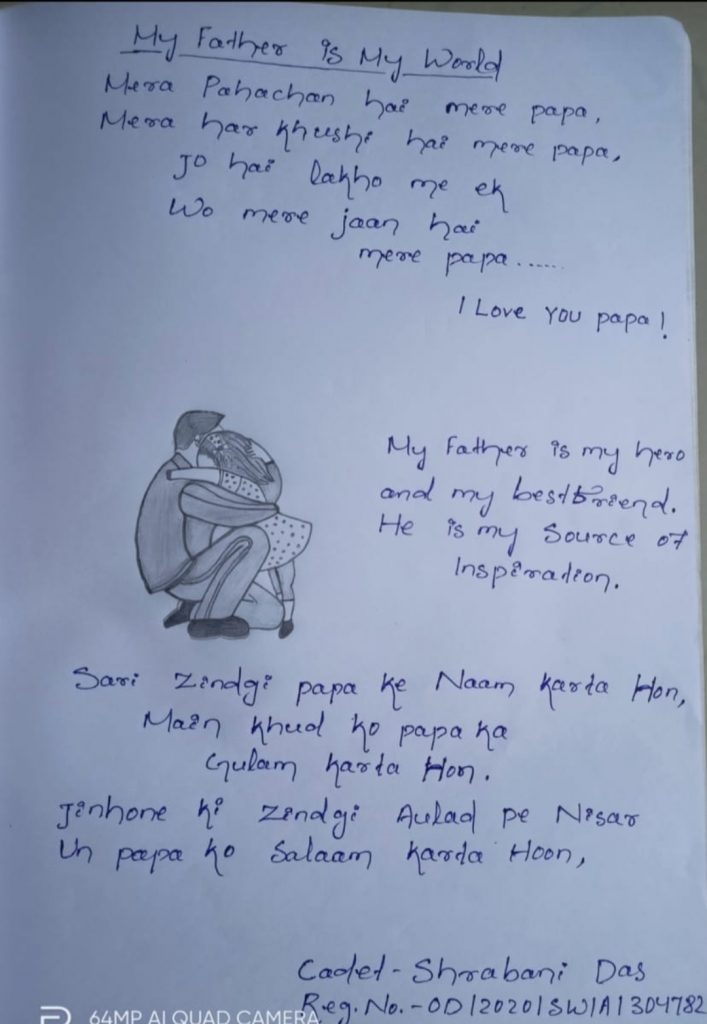 My Father is My World
Mera Pahachan hai mere papa,
Mera har khushi hai mere papa,
Jo hai lakho me ek
Wo mere jaan hai
mere papa......
I Love you papa!
My Father is my hero
and my bestfriend.
He is my Source of
Inspiration.
Sari Zindgi papa ke Naam karta Hon,
Main khud ko papa ka
Gulam karta Hon.
Jinhone ki Zindgi Aulad pe Nisar
Un papa ko Salaam karta Hoon,
Cadet - Shrabani Das
Reg. No. - OD/2020/SW/A/304782
64MP AI QUAD CAMERA